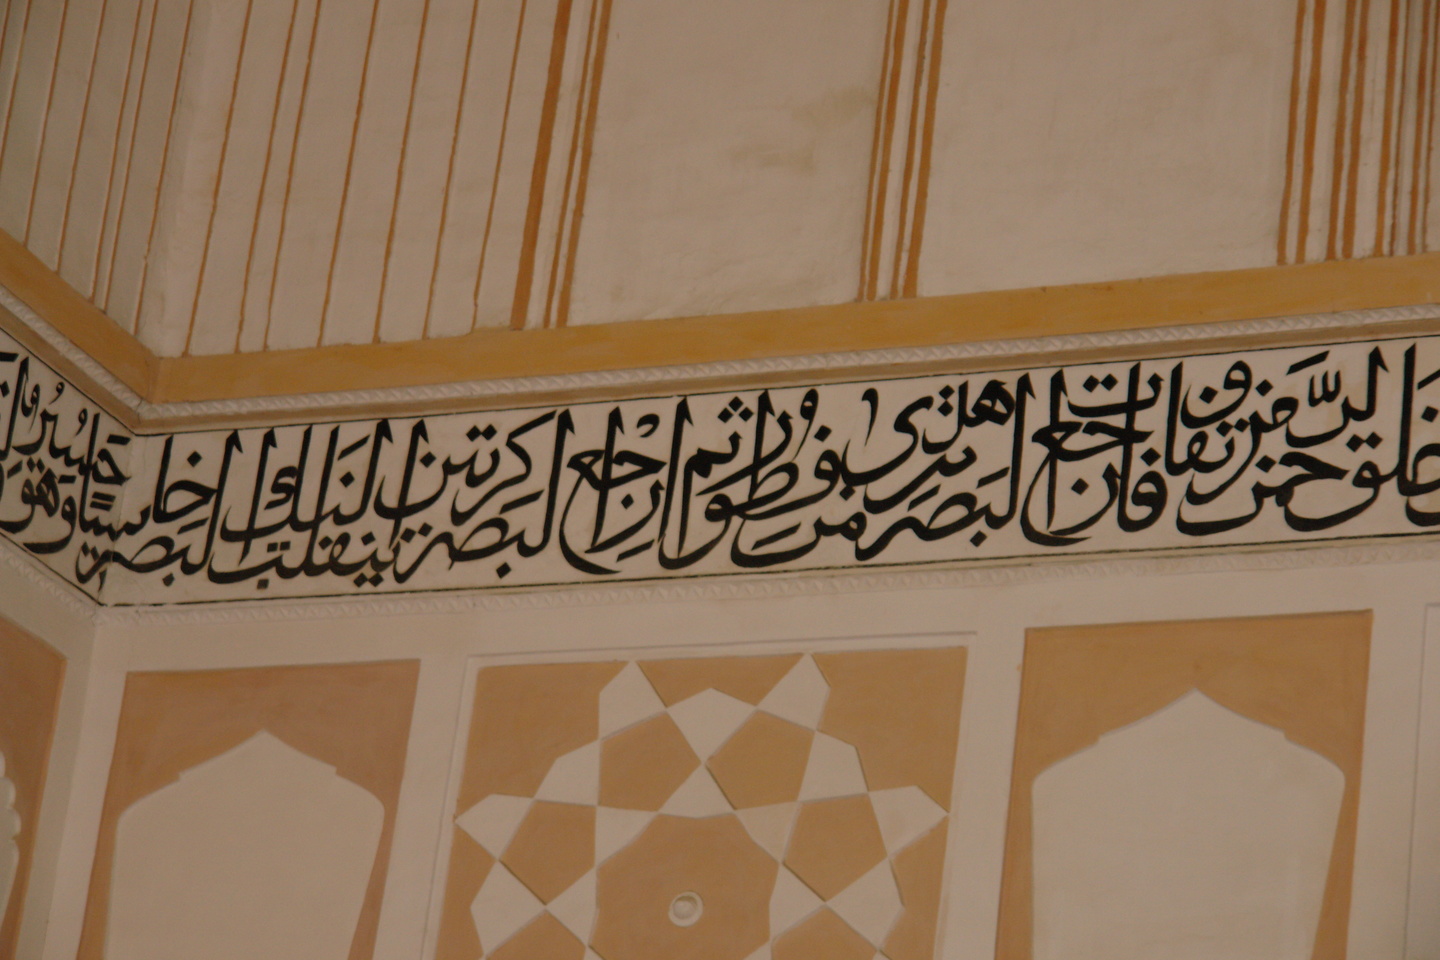 خلق الرحمن من تفاوت فارجع البصر هل ترى من فطور ثم ارجع البصر كرتين ينقلب إليك البصر خاسئا وهو حسير